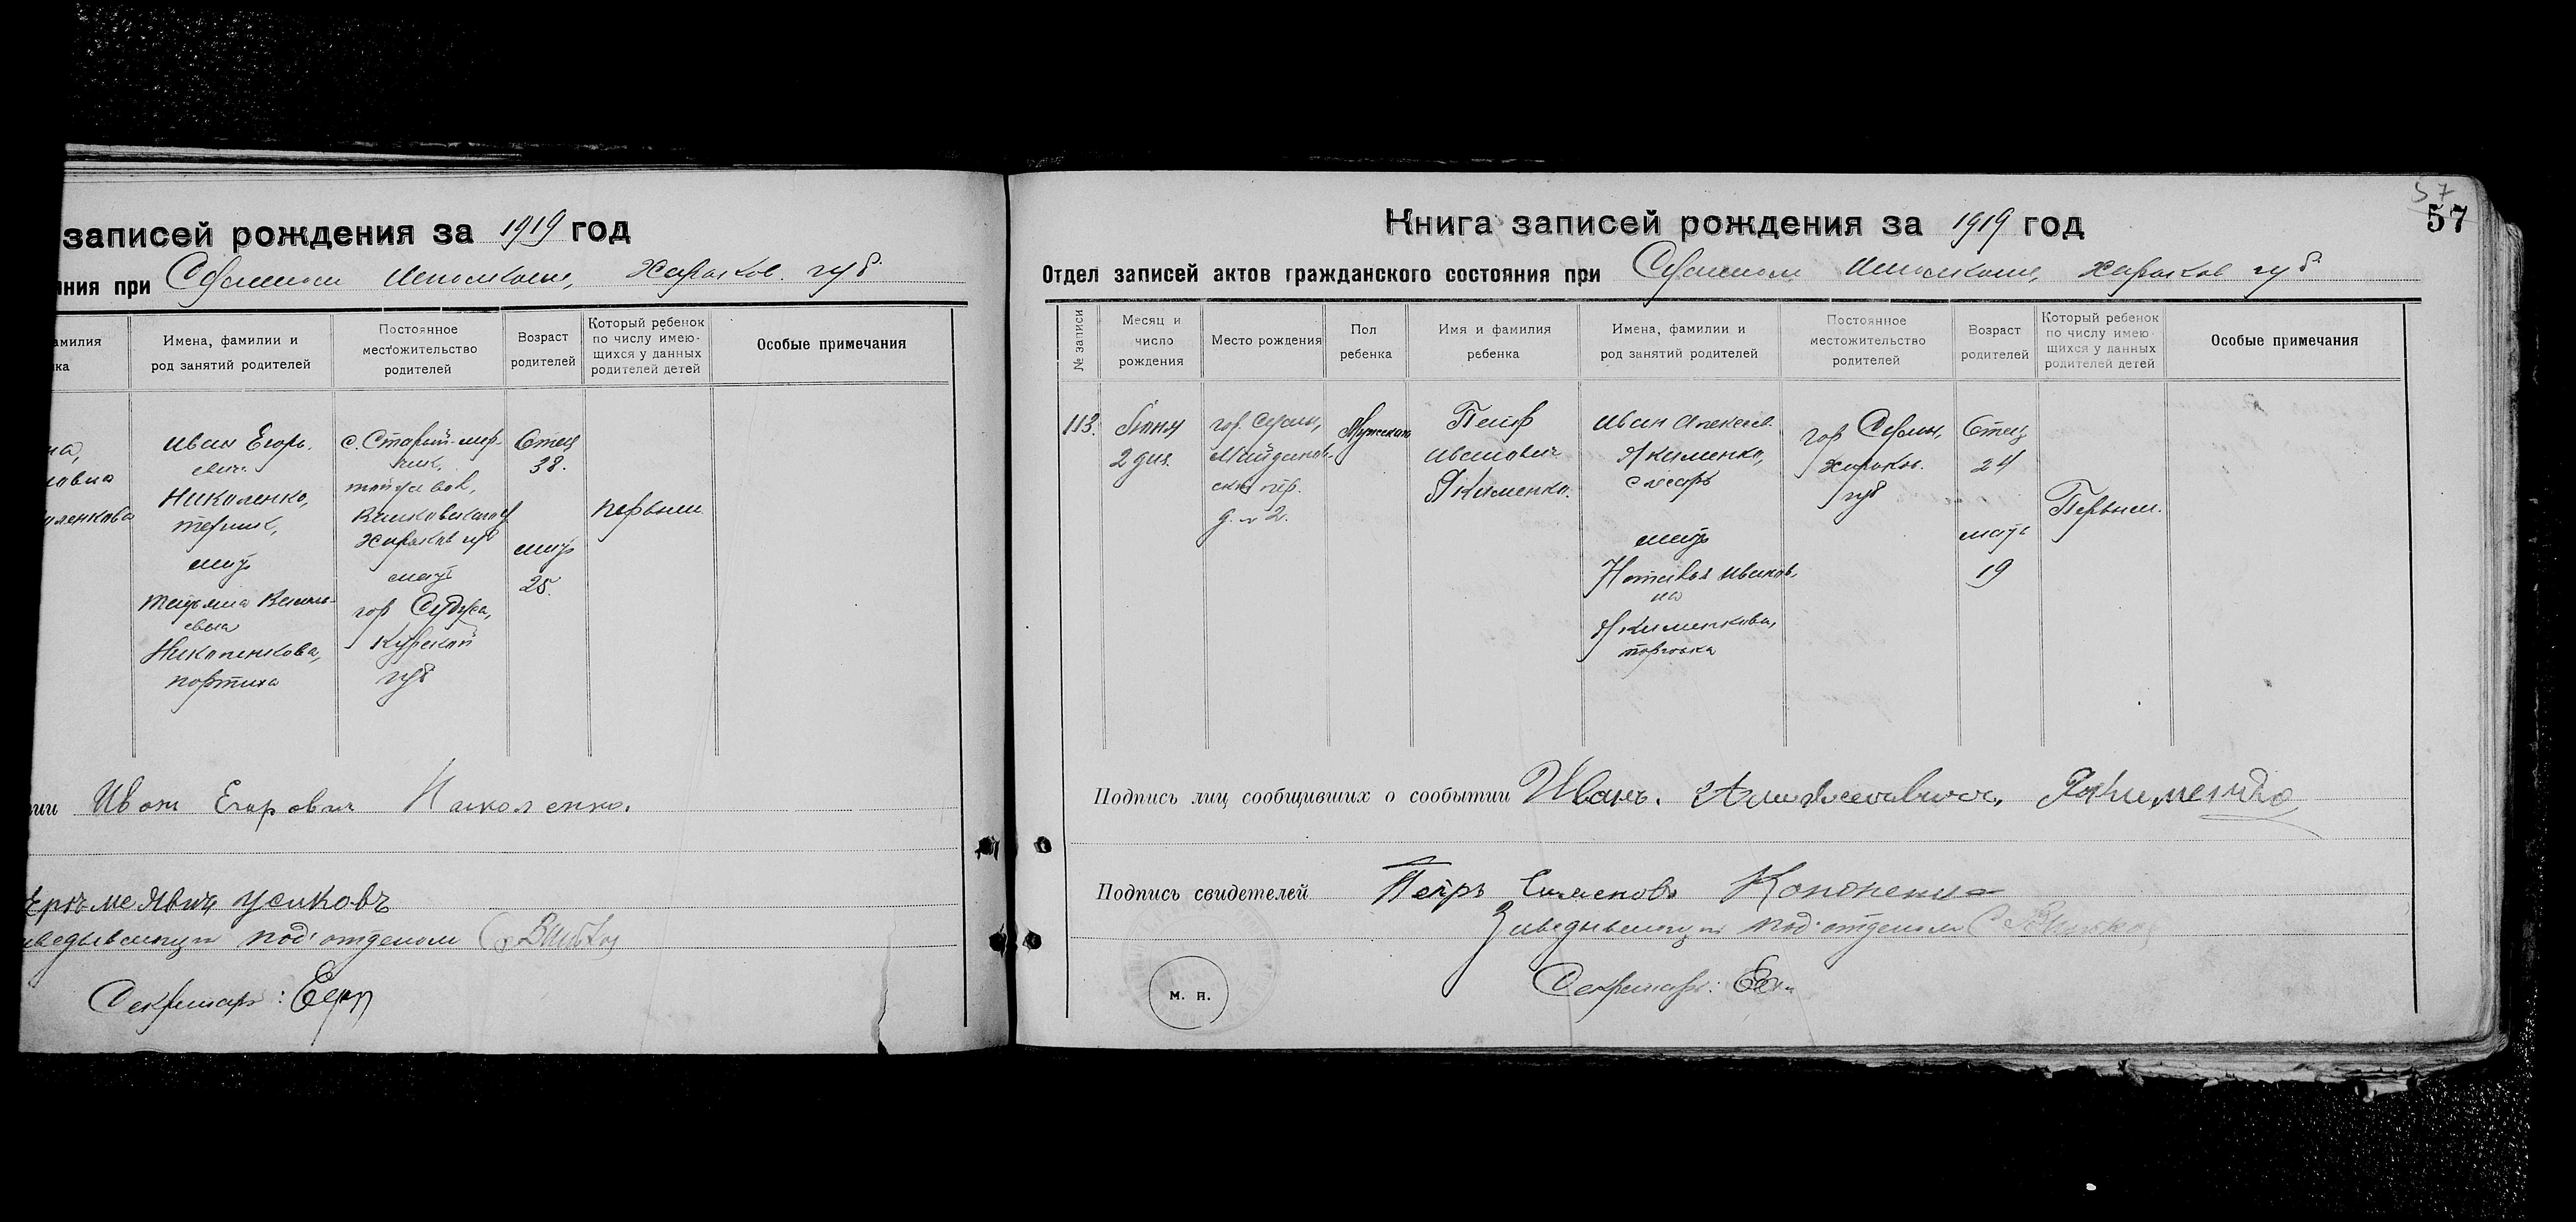 записей рождения за 1919 год
яния при Сумском Исполкоме, Харьков. губ.
амилия
ка
Имена, фамилии и
род занятий родителей
Постоянное
местожительство
родителей
Возраст
родителей
Который ребенок
по числу имею-
щихся у данных
родителей детей
Особые примечания
на,
овна
оленкова
Иван Егорь-
евич
Николенко,
мать
Татьяна Василь-
евна
Николенкова,
портниха
с. Старый-мер-
чик,
Харьков губ
мать
гор Суджа,
Курской
губ
Отец
38.
мать
25.
первым
ии Иван Егорович Николенко.
Усиковъ
аведывающий под'отделом
Секретарь:
57
57
Книга записей рождения за 1919 год
Отдел записей актов гражданского состояния при Сумском Исполкоме, Харьков губ
№ записи
Месяц и
число
рождения
Место рождения
Пол
ребенка
Имя и фамилия
ребенка
Имена, фамилии и
род занятий родителей
Постоянное
местожительство
родителей
Возраст
родителей
Который ребенок
по числу имею-
щихся у данных
родителей детей
Особые примечания
113.
Июня
2 дня.
гор. Сумы,
пер.
д. № 2.
Мужской
Петр
Иванович
Якименко.
Иван Алексеев.
Якименко,
слесарь
мать
Наталья Иванов-
на
Якименкова,
гор Сумы,
Харьков.
губ
Отец
24
мать
19
Первым.
Подпись лиц сообщивших о событии Иванъ. Алексеевичъ. Якименко
Подпись свидетелей Петръ Кононенко
Заведывающий под'отделом
Секретарь:
М. П.